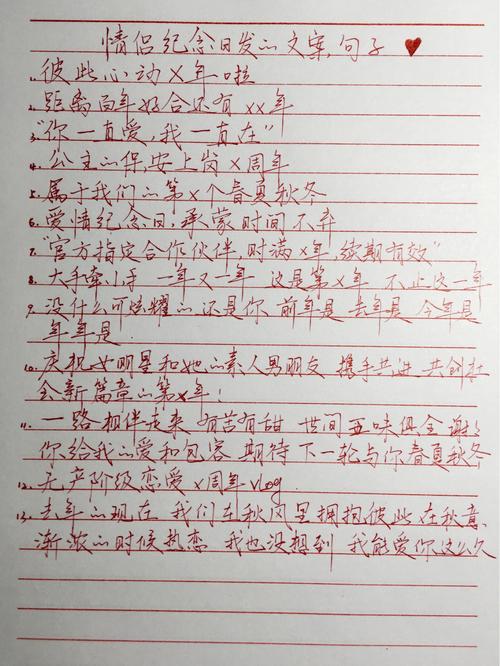 情侣纪念日发的文案,句子
1.彼此心动X年啦
2.距离百年好合还有xx年
3."你一直爱,我一直在"
4.公主的保安上岗X周年
5.属于我们的第X个春夏秋冬
6.爱情纪念日,承蒙时间不弃
7."官方指定合作伙伴,时满X年,续期有效"
8.大手牵小手 一年又一年 这是第X年 不止这一年
9.没什么可炫耀的 还是你 前年是 去年是 今年是
年年是
10.庆祝女明星和她的素人男朋友 携手共进 共创社
会新篇章的第X年!
11.一路相伴走来 有苦有甜 世间五味俱全 谢谢
你给我的爱和包容 期待下一轮与你春夏秋冬
12.无产阶级恋爱X周年vlog
13.去年的现在 我们在秋风里拥抱彼此 在秋意
渐浓的时候热恋 我也没想到 我能爱你这么久